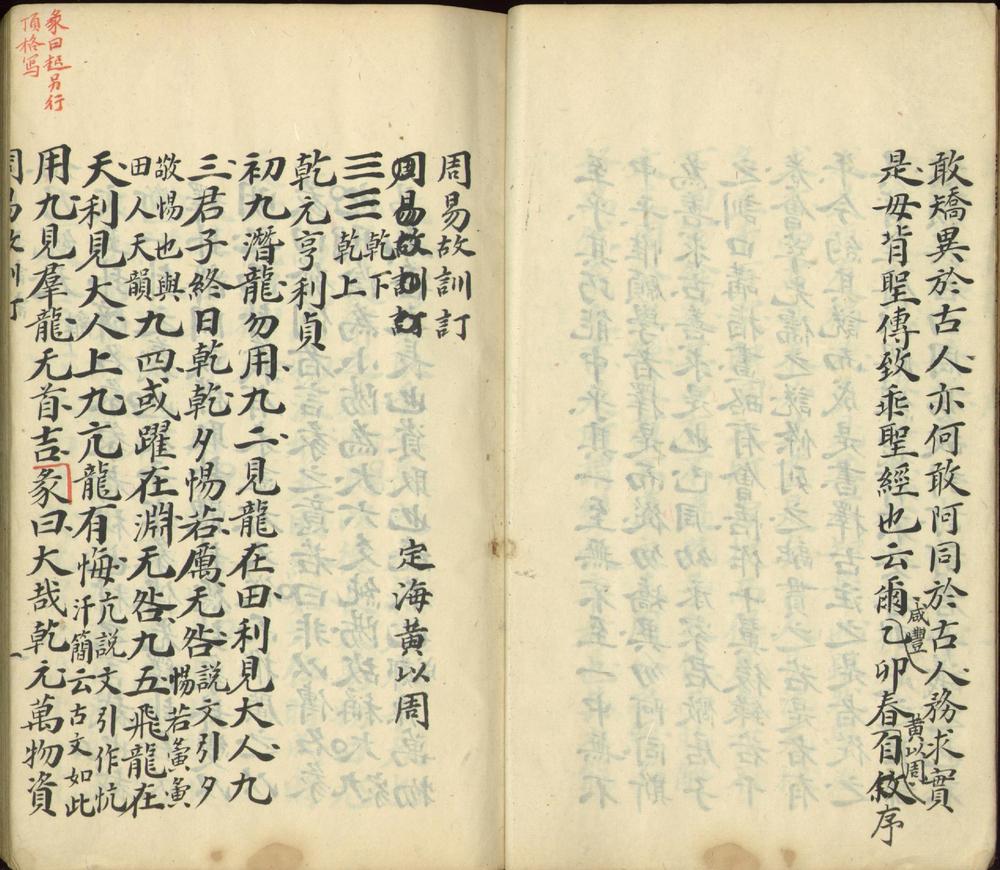 敢矯異於古人亦何敢阿同於古人務求實
是毋背聖傳致乖聖經也云爾咸豐乙卯春黃以周自敘序
周易故訓訂
周易故訓訂 定海黃以周
☰☰乾下乾上
乾元亨利貞
初九潛龍勿用九二見龍在田利見大人九
三君子終日乾乾夕惕若厲无咎說文引夕惕若夤夤
敬惕也與田人天韻九四或躍在淵无咎九五飛龍在
天利見大人上九亢龍有悔亢說文引作忼汗簡云古文如此
用九見羣龍无首吉彖曰大哉乾元萬物資
周易故訓訂
彖曰起另行
頂格寫